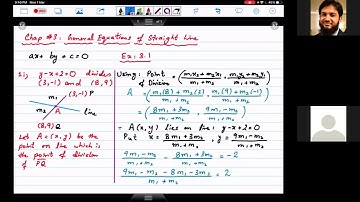 9:40 PM Mon 1 Mar
Chap #3: General Equations of Straight Line
ax + by + c = 0
Ex: 3.1
Q.1;
y-x+2=0 divides
(3,-1) and (8,9)
(3,-1) P
m₁
A
m₂
line
(8,9) Q
Let A = (x,y) be the
point on line which is
the point of division
of PQ
Using: Point of Division = (m₁x₂+m₂x₁ / m₁+m₂, m₁y₂+m₂y₁ / m₁+m₂)
A = (m₁(8)+m₂(3) / m₁+m₂, m₁(9)+m₂(-1) / m₁+m₂)
= (8m₁+3m₂ / m₁+m₂, 9m₁-m₂ / m₁+m₂)
∵ A(x,y) lies on line: y-x+2=0
Put x = 8m₁+3m₂ / m₁+m₂, y = 9m₁-m₂ / m₁+m₂
9m₁-m₂ / m₁+m₂ - 8m₁+3m₂ / m₁+m₂ = -2
9m₁-m₂-8m₁-3m₂ / m₁+m₂ = 2